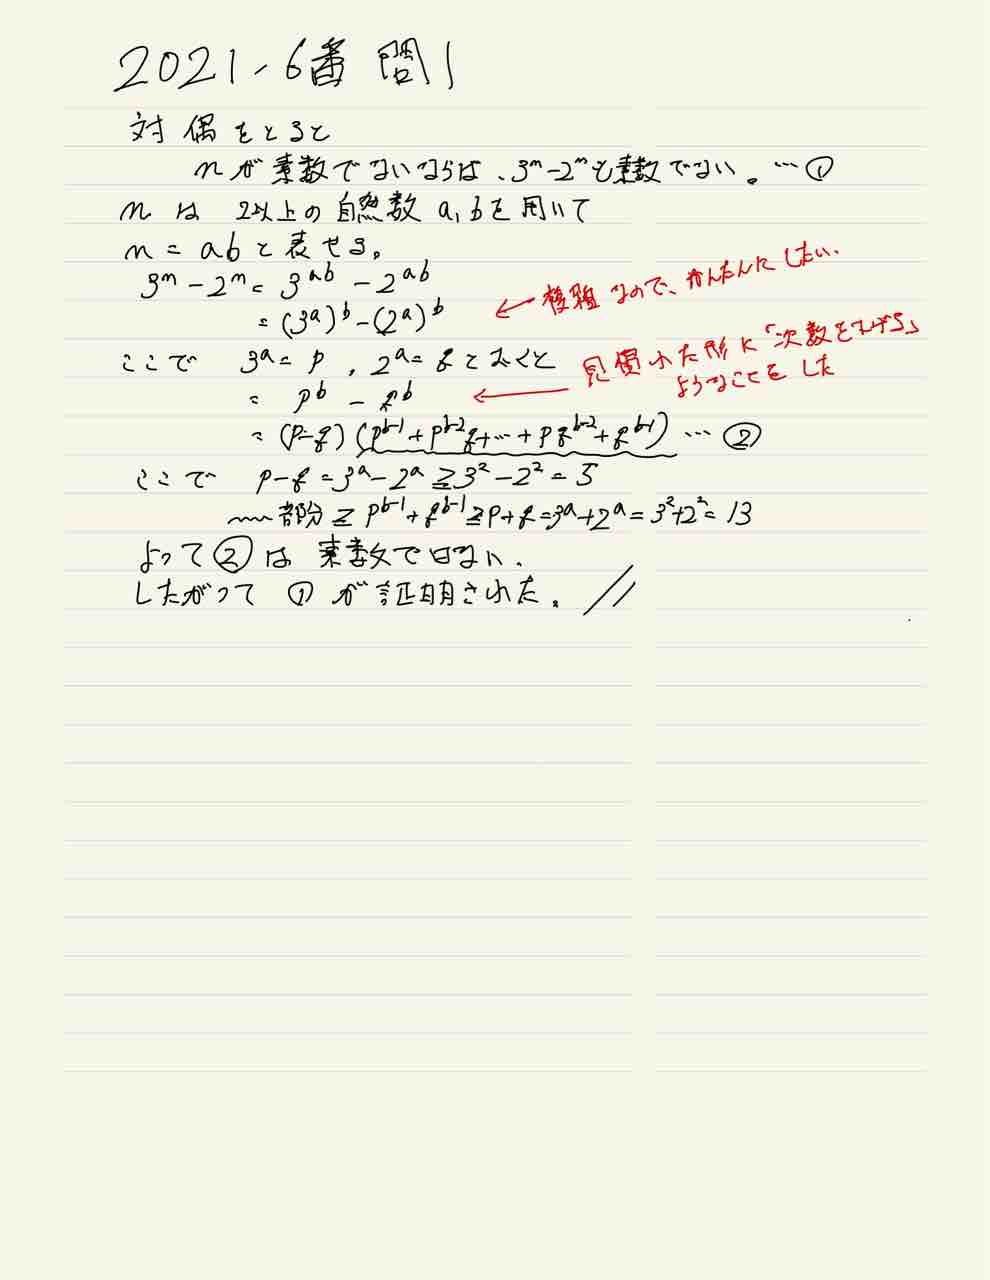 2021-6番 問1
対偶をとると
nが素数でないならば、3ⁿ-2ⁿも素数でない。…①
nは 2以上の自然数 a, bを用いて
n = ab と表せる。
3ⁿ-2ⁿ = 3ᵃᵇ - 2ᵃᵇ
= (3ᵃ)ᵇ-(2ᵃ)ᵇ
← 複雑なので、かんたんにしたい.
ここで 3ᵃ= p , 2ᵃ= q とおくと
= pᵇ - qᵇ
← 見慣れた形に「次数を下げる」
ようなことをした
= (p-q)(pᵇ⁻¹+pᵇ⁻²q+…+pqᵇ⁻²+qᵇ⁻¹) …②
ここで p-q = 3ᵃ-2ᵃ ≧ 3²-2² = 5
〰部分 ≧ pᵇ⁻¹+qᵇ⁻¹ ≧ p+q = 3ᵃ+2ᵃ = 3²+2² = 13
よって②は 素数ではない.
したがって ①が証明された. //